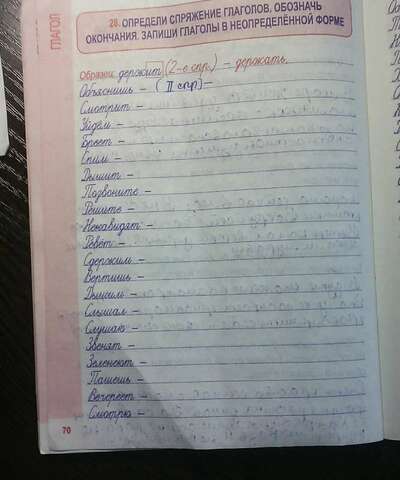 ГЛАГОЛ
28. ОПРЕДЕЛИ СПРЯЖЕНИЕ ГЛАГОЛОВ, ОБОЗНАЧЬ
ОКОНЧАНИЯ. ЗАПИШИ ГЛАГОЛЫ В НЕОПРЕДЕЛЁННОЙ ФОРМЕ
Образец: держит (2-е спр.) – держать.
Объяснишь – (II спр) –
Смотрит –
Уйдём –
Бреет –
Спим –
Дышит –
Позвоните –
Решите –
Ненавидят –
Ревёт –
Сдержим –
Вертишь –
Дышим –
Слышал –
Слушаю –
Звенят –
Зеленеют –
Пашешь –
Вечереет –
Смотрю –
70